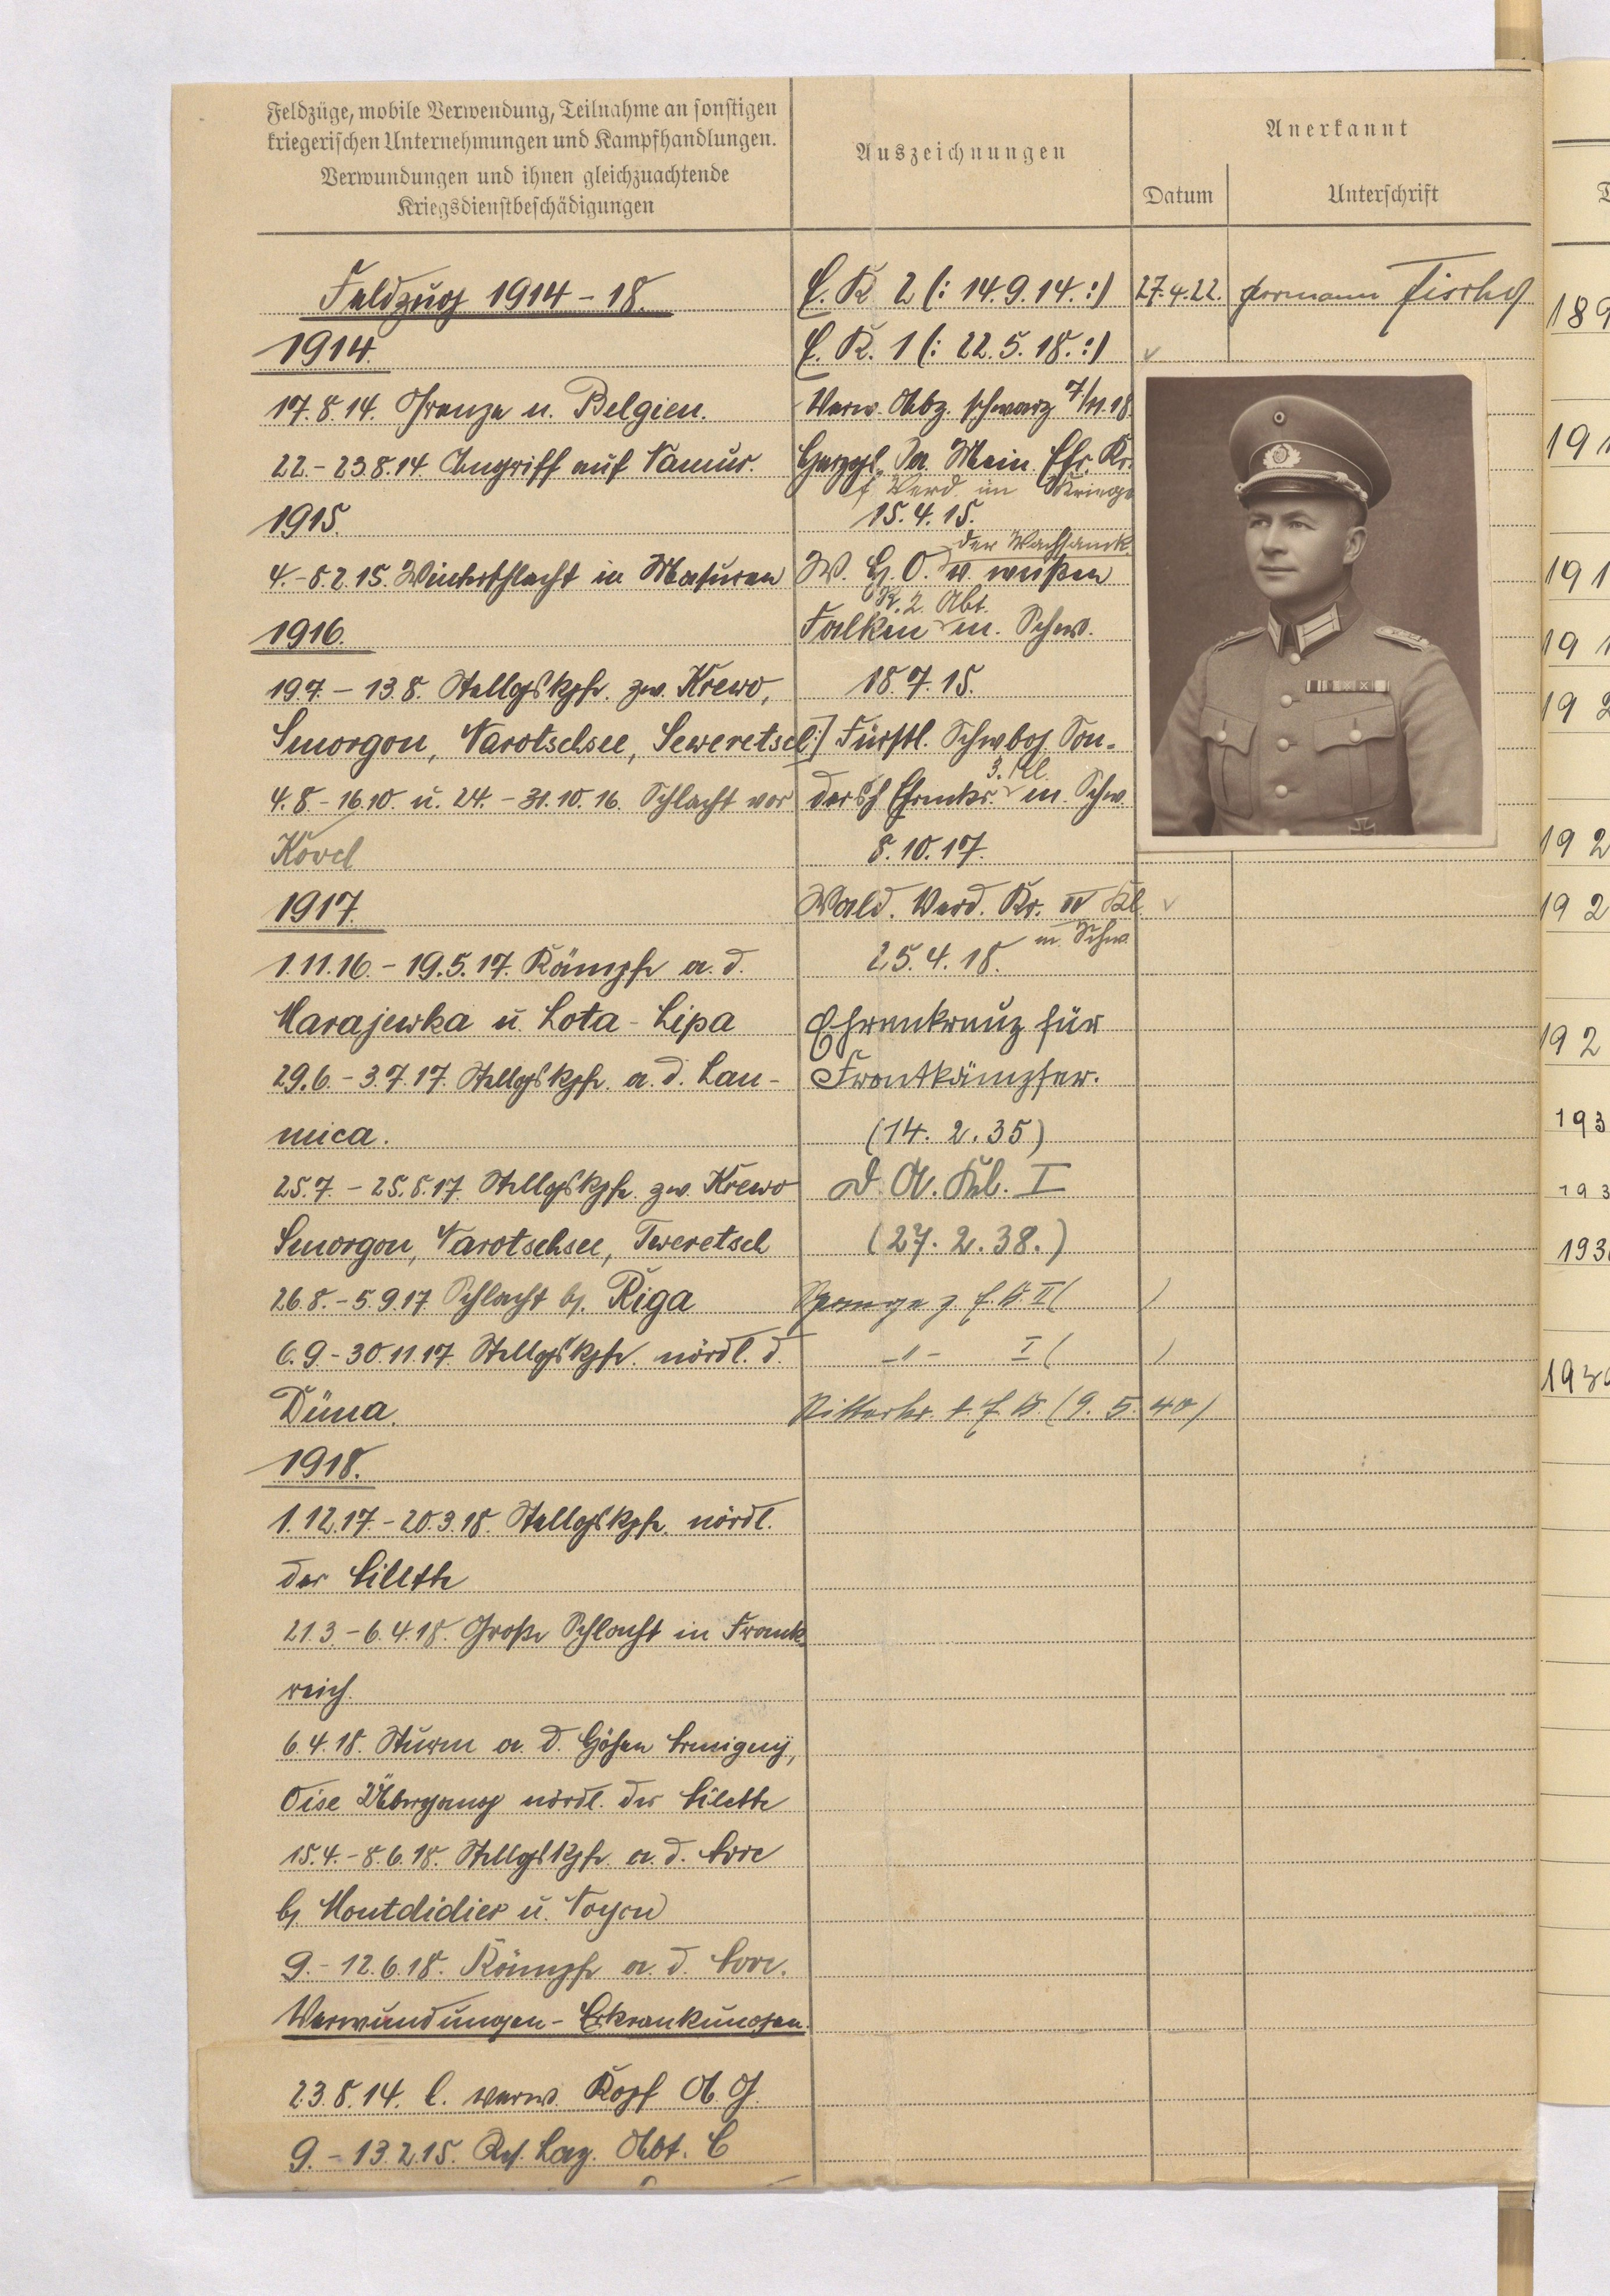 Feldzüge, mobile Verwendung, Teilnahme an sonstigen
kriegerischen Unternehmungen und Kampfhandlungen.
Verwundungen und ihnen gleichzuachtende
Kriegsdienstbeschädigungen
Auszeichnungen
Anerkannt
Datum
Unterschrift
Feldzug 1914 - 18.
1914.
17.8.14. Grenze u. Belgien.
22.- 23.8.14. Angriff auf Namur.
1915.
4.-8.2.15. Winterschlacht in Masuren
1916.
19.7. - 13.8. Stellgskpfe. zw. Krewo,
Smorgon, Narotschsee, Seweretsch
4.8.-16.10. u. 24.-31.10.16. Schlacht vor
Kovel
1917.
1.11.16.- 19.5.17. Kämpfe a. d.
Narajewka u. Zota-Lipa
29.6. - 3.7.17. Stellgskpfe. a. d. Lau-
mica.
25.7. - 25.8.17 Stellgskpfe zw. Krewo
Smorgon, Narotschsee, Tweretsch
26.8.-5.9.17 Schlacht b. Riga
6.9.-30.11.17. Stellgskpfe. nördl. d.
Düna.
1918.
1.12.17.-20.3.18. Stellgskpfe. nördl.
der Ailette
21.3.-6.4.18. Große Schlacht in Frank-
reich.
6.4.18. Sturm a. d. Höhen Amigny,
Oise Übergang nördl. der Ailette
15.4.-8.6.18. Stellgskpfe. a. d. Avre
b. Montdidier u. Noyon
9.-12.6.18. Kämpfe a. d. Avre.
Verwundungen - Erkrankungen.
23.8.14. l. verw. Kopf A. G.
9.-13.2.15. Res. Laz. Abt. C
E. K. 2 (: 14.9.14. :)
E. K. 1 (: 22.5.18. :)
Verw. Abz. schwarz 7/11.18.
Herzogl. Sa. Mein. Ehr. Kr.
f. Verd. im Kriege
15.4.15.
der Wachsamk.
W. H. O. v. weißen
R. 2. Abt.
Falken m. Schw.
18.7.15.
Fürstl. Schwbg. Son-
3. Kl.
dersh. Ehrenkr. m. Schw.
8.10.17.
Wald. Verd. Kr. IV Kl.
m. Schw.
25.4.18.
Ehrenkreuz für
Frontkämpfer.
(14. 2. 35)
D. A. Kl. I
(27. 2. 38.)
Spange z. E. K. II ( )
-"- I ( )
Ritterkr. z. E. K. (9. 5. 40)
27.4.22.
193
193